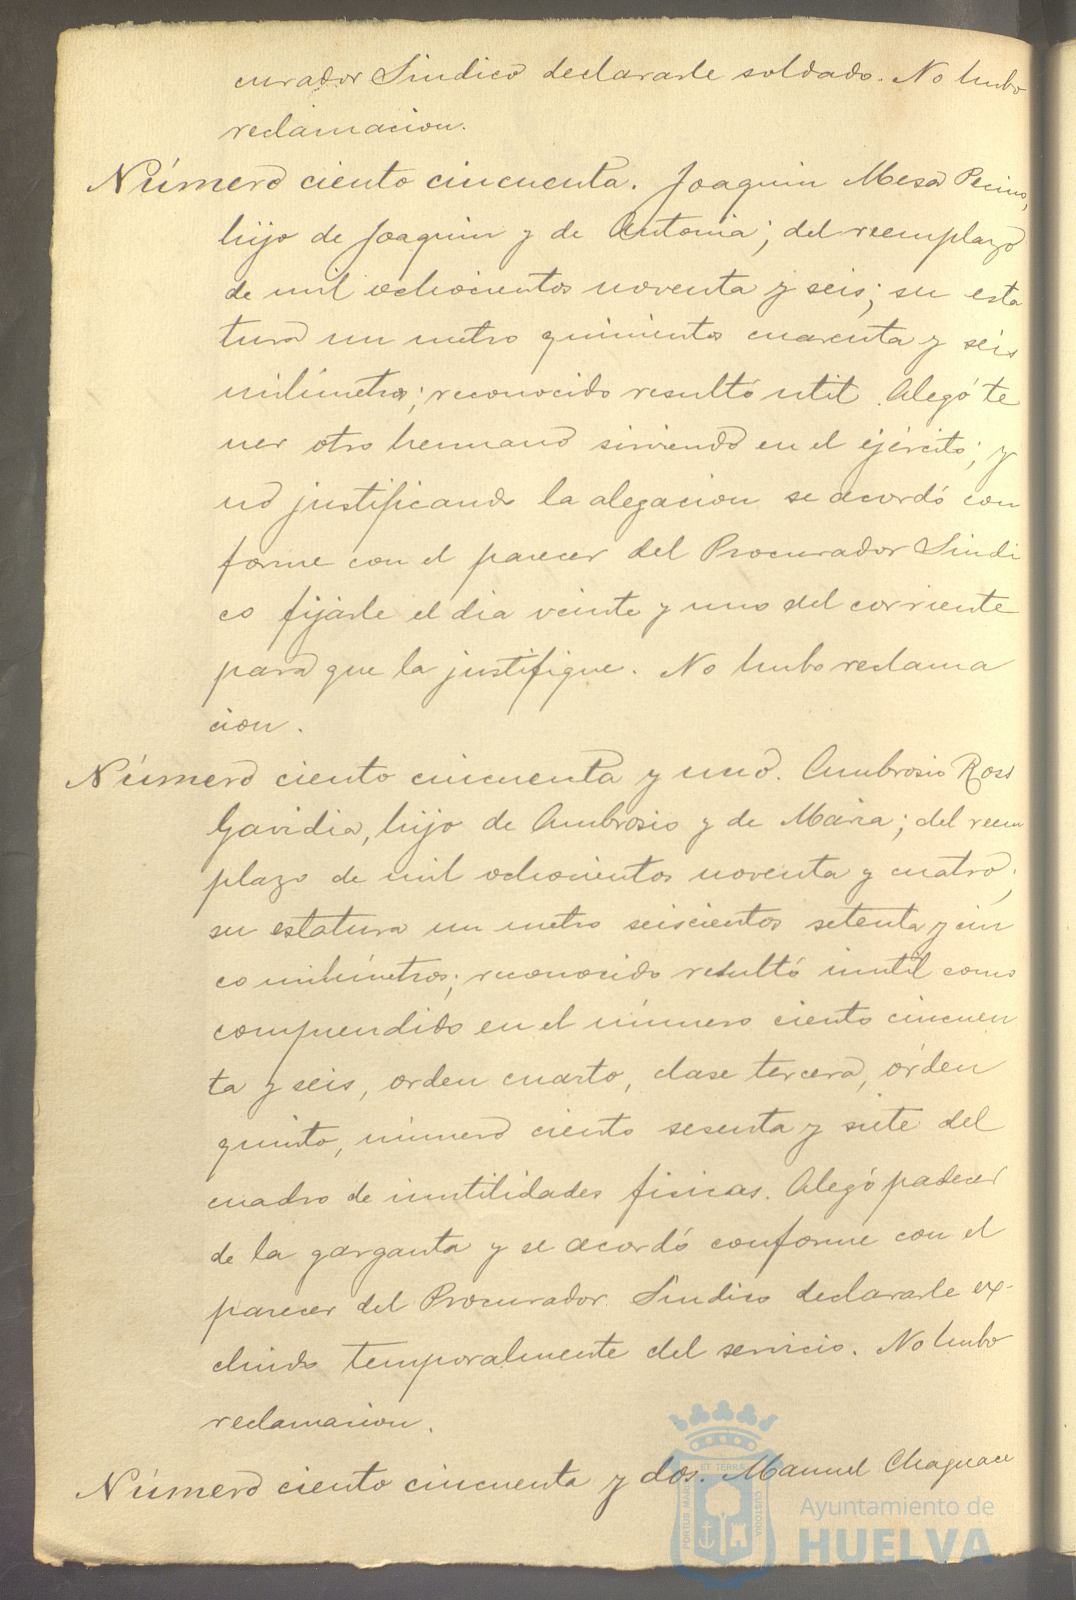 curador Síndico declararle soldado. No hubo
reclamacion.
Número ciento cincuenta. Joaquin Mesa Pecino,
hijo de Joaquin y de Antonia; del reemplazo
de mil ochocientos noventa y seis; su esta
tura un metro quinientos cuarenta y seis
milímetros; reconocido resultó util. Alegó te
ner otro hermano sirviendo en el ejército; y
no justificando la alegacion se acordó con
forme con el parecer del Procurador Síndi
co fijarle el dia veinte y uno del corriente
para que la justifique. No hubo reclama
cion.
Número ciento cincuenta y uno. Ambrosio Ros
Gavidia, hijo de Ambrosio y de Maria; del reem
plazo de mil ochocientos noventa y cuatro;
su estatura un metro seiscientos setenta y cin
co milímetros; reconocido resultó inutil como
comprendido en el número ciento cincuen
ta y seis, orden cuarto, clase tercera, órden
quinto, número ciento sesenta y siete del
cuadro de inutilidades fisicas. Alegó padecer
de la garganta y se acordó conforme con el
parecer del Procurador Síndico declararle ex-
cluido temporalmente del servicio. No hubo
reclamacion.
Número ciento cincuenta y dos. Manuel
ET TERRAE
PORTUS MARIS
CUSTODIA
Ayuntamiento de
HUELVA